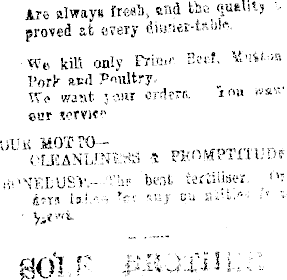 Are always fresh, and the quality
proved at every dinner-table.
We kill only Prime Beef, Mutton
Pork and Poultry.
We want your orders. You want
our service
OUR MOTTO—
CLEANLINESS & PROMPTITUDE
BONEDUST.—The best fertiliser. Or
ders taken for any